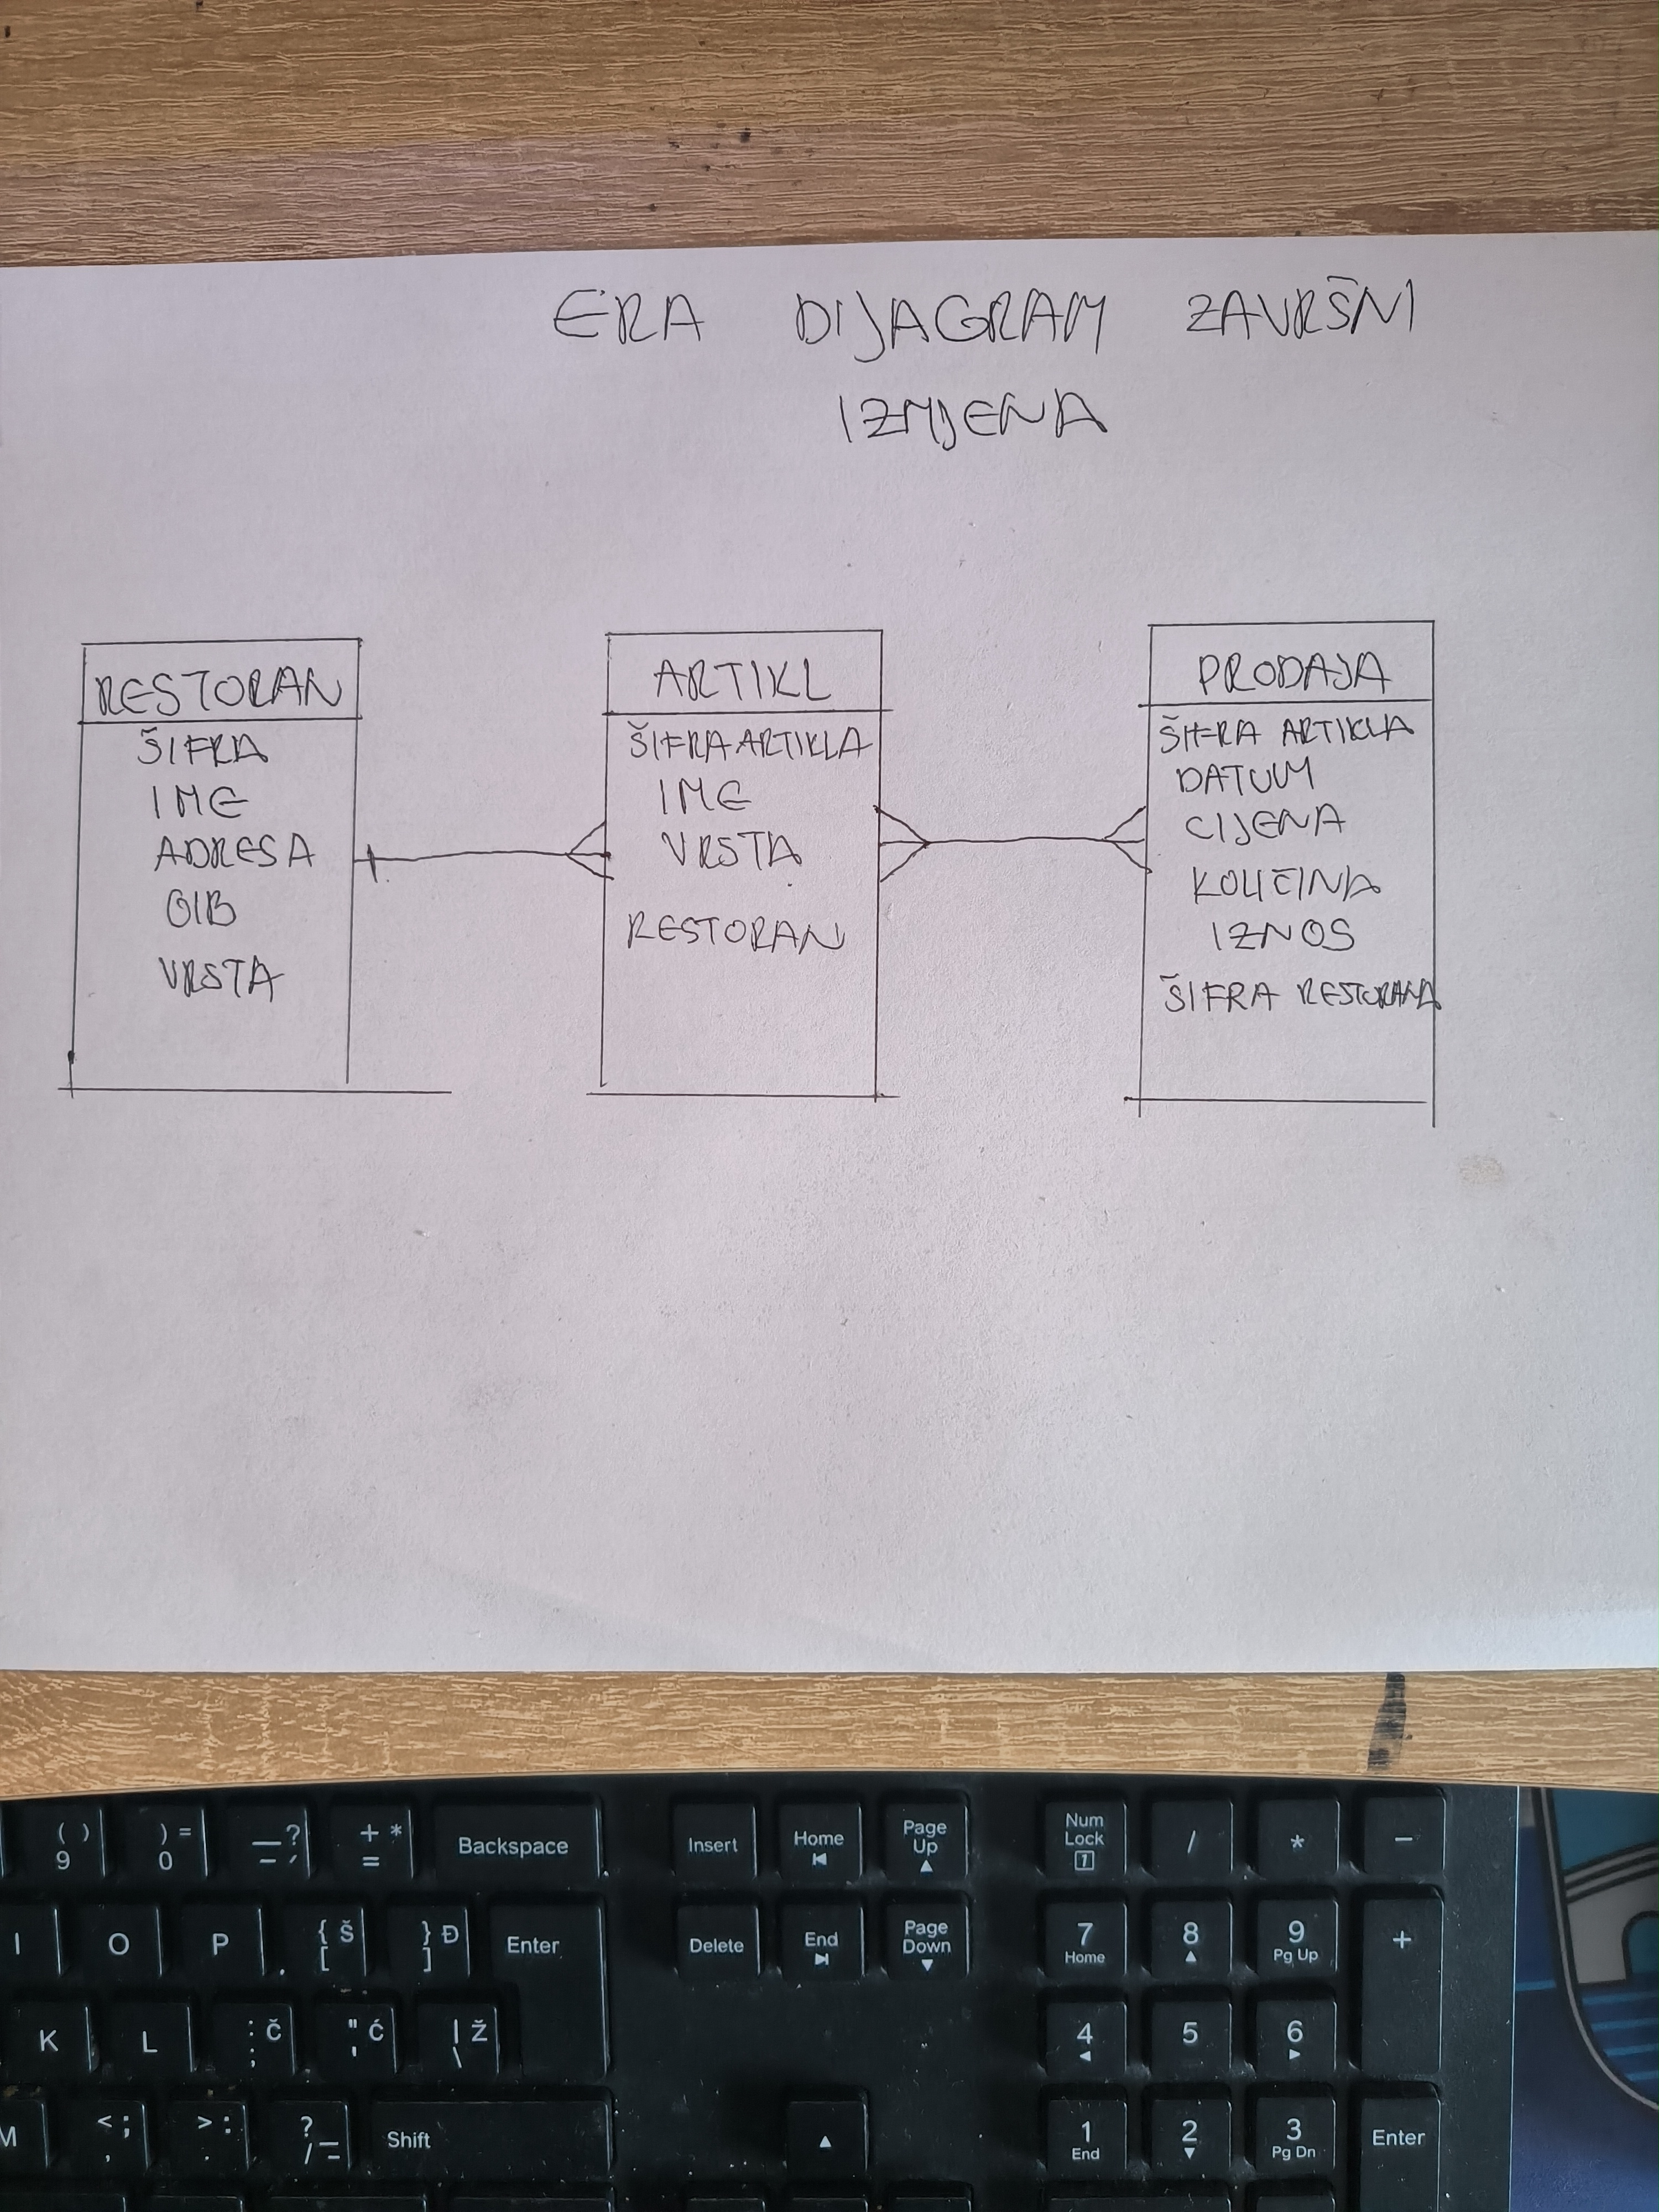 ERA DIJAGRAM ZAVRŠNI
IZMJENA
RESTORAN
ŠIFRA
IME
ADRESA
OIB
VRSTA
ARTIKL
ŠIFRA ARTIKLA
IME
VRSTA
RESTORAN
PRODAJA
ŠIFRA ARTIKLA
DATUM
CIJENA
KOLIČINA
IZNOS
ŠIFRA RESTORANA
( ) 9
) = 0
— ? - '
+ * =
Backspace
Insert
Home
Page Up
Num Lock 1
/
*
-
I
O
P
{ Š [
} Đ ]
Enter
Delete
End
Page Down
7 Home
8
9 Pg Up
+
K
L
: Č ;
" Ć '
| Ž \
4
5
6
M
< ; ,
> : .
? / _
Shift
1 End
2
3 Pg Dn
Enter